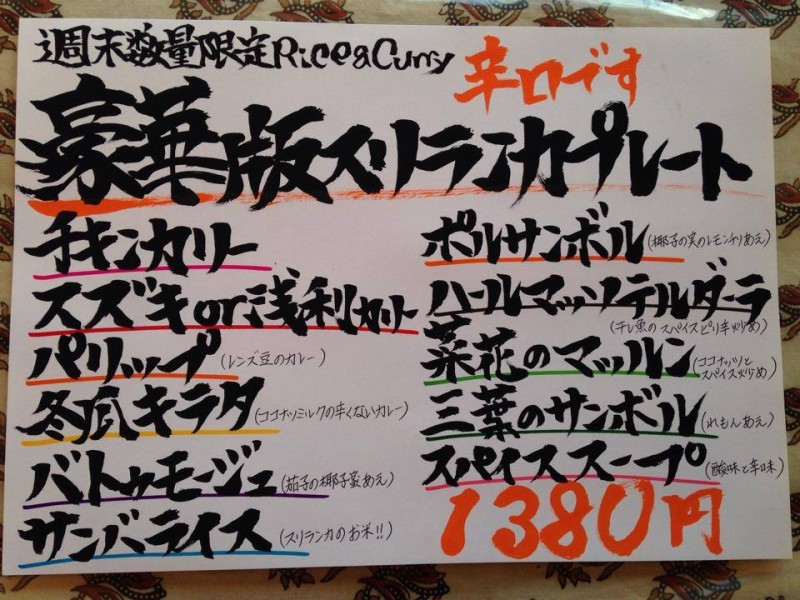 週末数量限定Rice&Curry
辛口です
豪華版スリランカプレート
チキンカリー
スズキor浅利カリー
パリップ(レンズ豆のカレー)
冬瓜キラタ(ココナッツミルクの辛くないカレー)
バトゥモージュ(茄子の椰子蜜あえ)
サンバライス(スリランカのお米!!)
ポルサンボル(椰子の実のレモンチリあえ)
ハールマッソテルダーラ
(干し魚のスパイスピリ辛炒め)
菜花のマッルン(ココナッツと
スパイス炒め)
三葉のサンボル(れもんあえ)
スパイススープ(酸味と辛味)
1380円